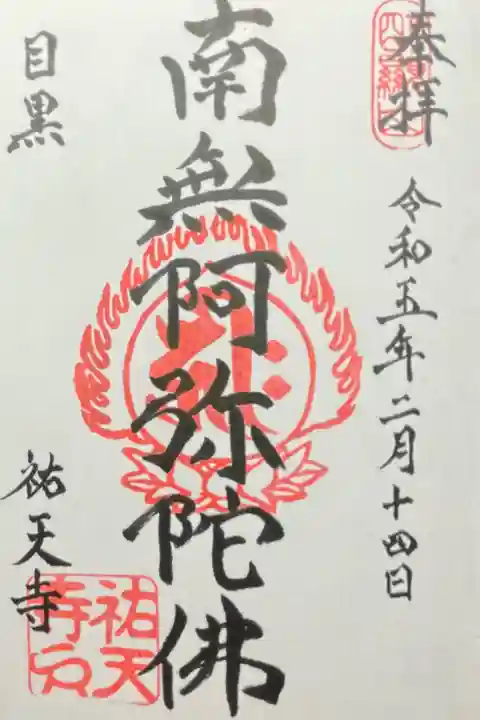 奉拝
令和五年二月十四日
南無阿弥陀佛
目黒
祐天寺
祐天
寺印